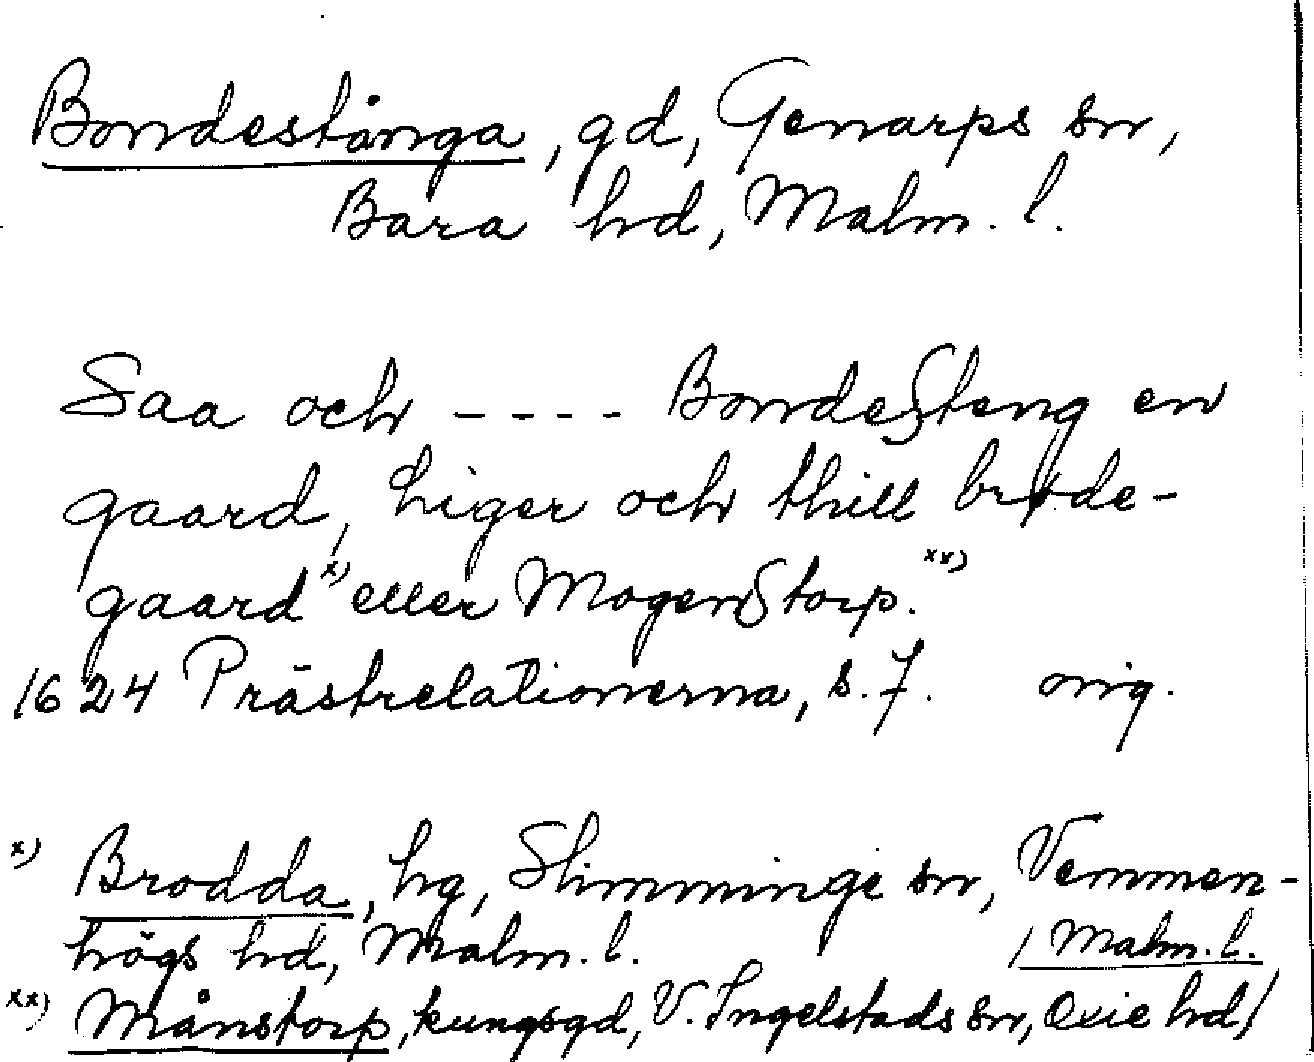 Bondestånga, gd, Genarps sn,
Bara hd, Malm. l.
Saa och ---- BondeSteng en
gaard, higer och thill brøde-
gaard x) eller MogenStorp. xx)
1624 Prästrelationerna, s. 7. orig.
x) Brodda, hg, Slimminge sn, Vemmen-
högs hd, Malm. l.
xx) Månstorp, kungsgd, V. Ingelstads sn, Oxie hd/
/Malm. l.